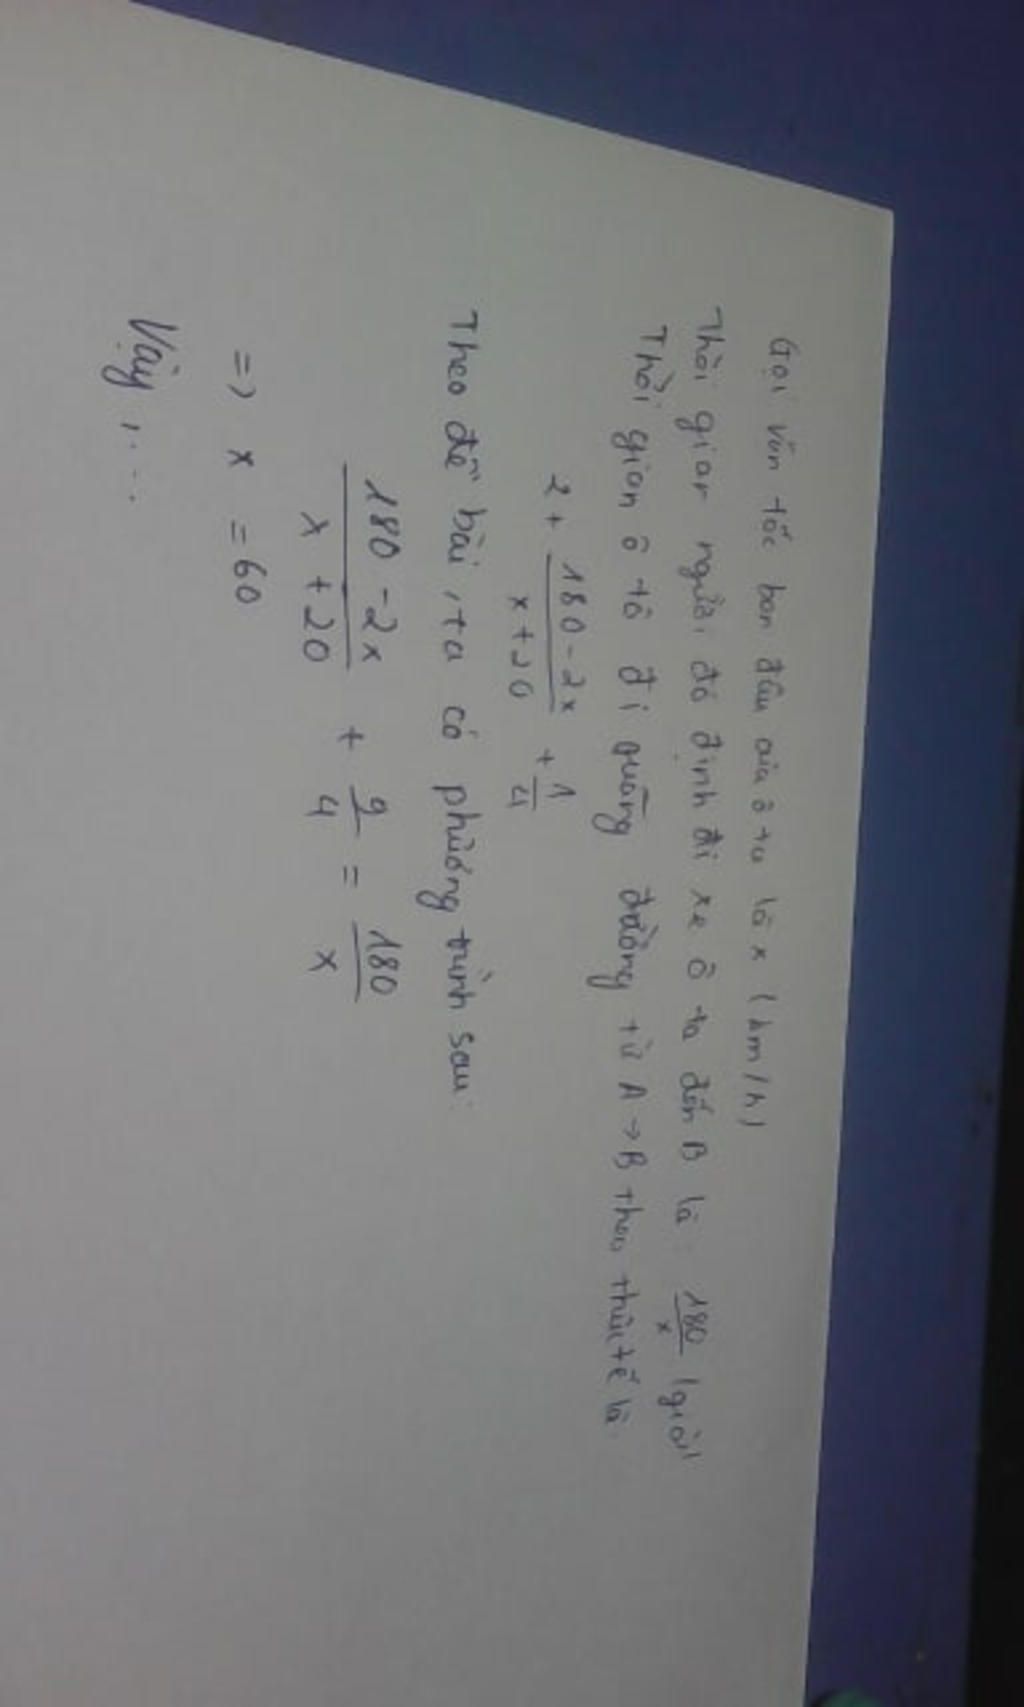 Gọi vận tốc ban đầu của ô tô là x (km/h)
Thời gian người đó định đi xe ô tô đến B là: 180/x (giờ)
Thời gian ô tô đi quãng đường từ A → B theo thực tế là
2 + (180 - 2x)/(x + 20) + 1/4
Theo đề bài, ta có phương trình sau:
(180 - 2x)/(x + 20) + 9/4 = 180/x
=> x = 60
Vậy ....